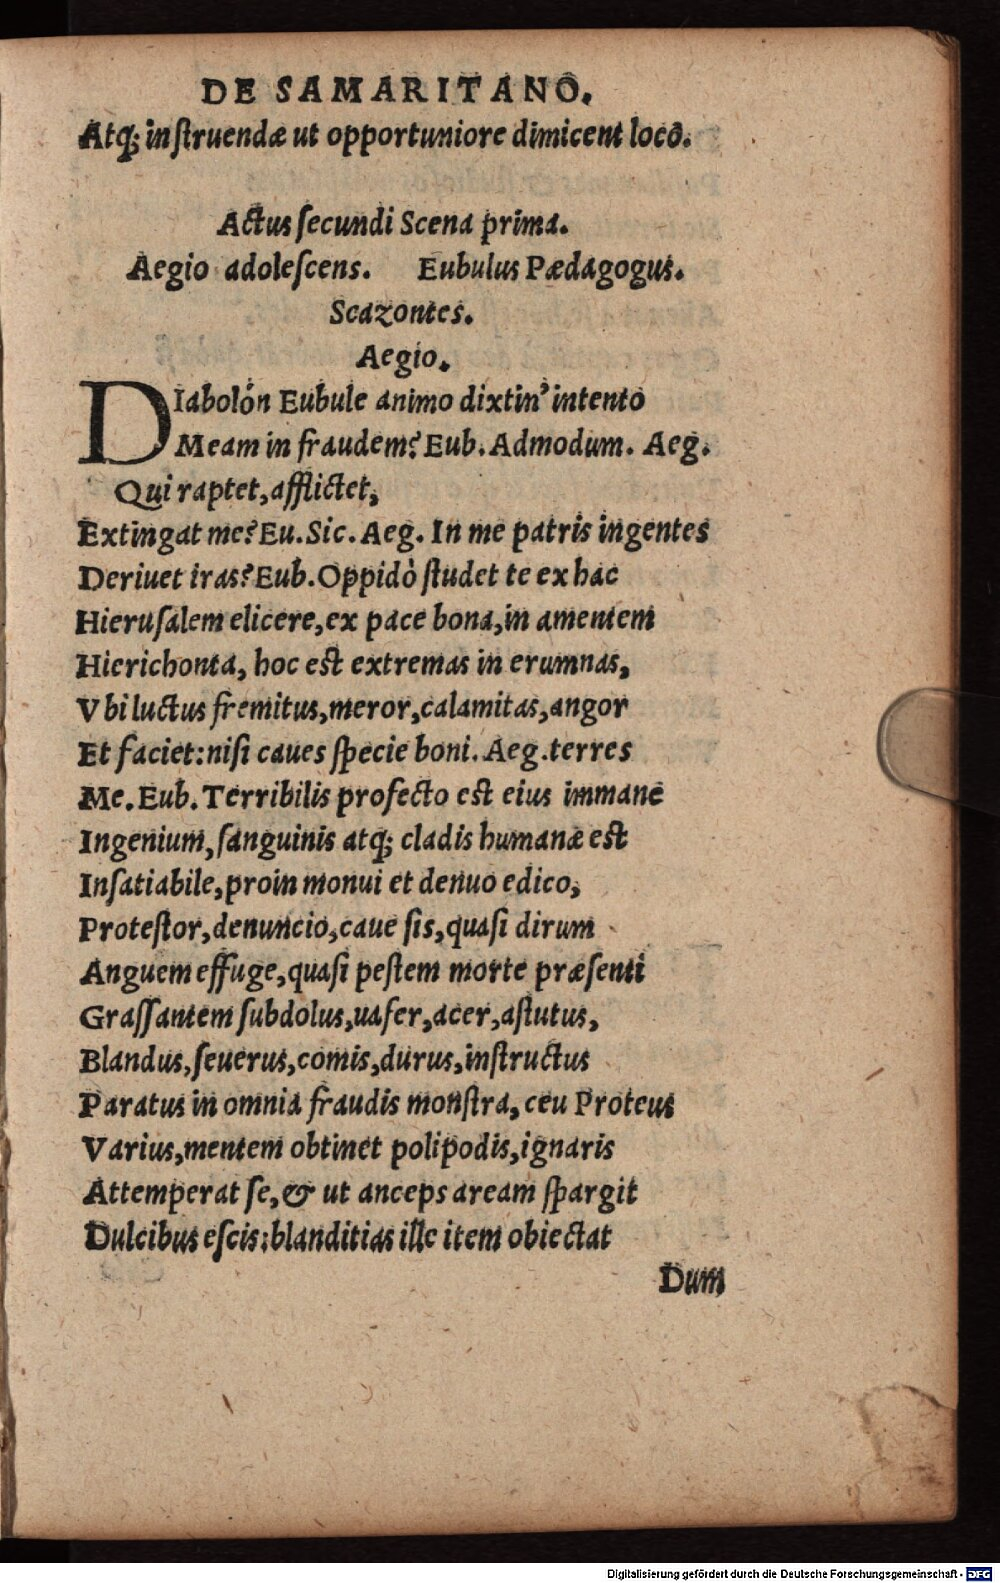 DE SAMARITANO.
Atq; inſtruendæ ut opportuniore dimicent loco.
Actus ſecundi Scena prima.
Aegio adoleſcens. Eubulus Pædagogus.
Scazontes.
Aegio.
DIabolón Eubule animo dixtin' intento
Meam in fraudem? Eub. Admodum. Aeg.
Qui raptet, afflictet,
Extingat me? Eu. Sic. Aeg. In me patris ingentes
Deriuet iras? Eub. Oppidò ſtudet te ex hac
Hieruſalem elicere, ex pace bona, in amentem
Hierichonta, hoc est extremas in erumnas,
Vbi luctus fremitus, meror, calamitas, angor
Et faciet: niſi caues ſpecie boni. Aeg. terres
Me. Eub. Terribilis profecto est eius immane
Ingenium, ſanguinis atq; cladis humanæ est
Inſatiabile, proin monui et denuo edico,
Proteſtor, denuncio, caue ſis, quaſi dirum
Anguem effuge, quaſi peſtem morte præſenti
Graſſantem ſubdolus, uafer, acer, aſtutus,
Blandus, ſeuerus, comis, durus, inſtructus
Paratus in omnia fraudis monſtra, ceu Proteus
Varius, mentem obtinet polipodis, ignaris
Attemperat ſe, & ut anceps aream ſpargit
Dulcibus eſcis: blanditias ille item obiectat
Dum
Digitalisierung gefördert durch die Deutsche Forschungsgemeinschaft - DFG